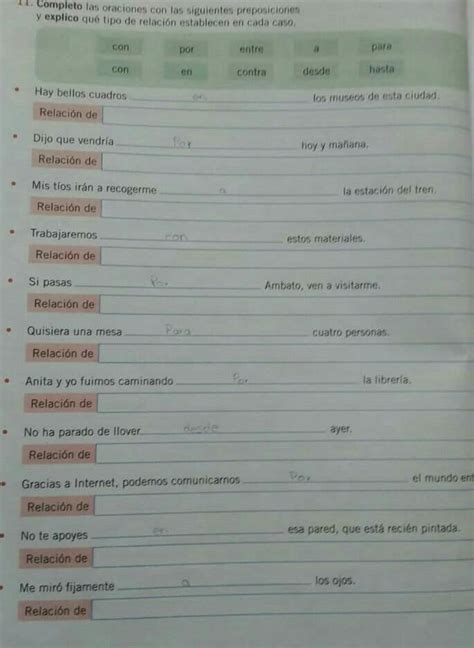 11. Completo las oraciones con las siguientes preposiciones
y explico qué tipo de relación establecen en cada caso.
con por entre a para
con en contra desde hasta
Hay bellos cuadros en los museos de esta ciudad.
Relación de
Dijo que vendría Por hoy y mañana.
Relación de
Mis tíos irán a recogerme a la estación del tren.
Relación de
Trabajaremos con estos materiales.
Relación de
Si pasas Por Ambato, ven a visitarme.
Relación de
Quisiera una mesa Para cuatro personas.
Relación de
Anita y yo fuimos caminando Por la librería.
Relación de
No ha parado de llover desde ayer.
Relación de
Gracias a Internet, podemos comunicarnos Por el mundo ent
Relación de
No te apoyes en esa pared, que está recién pintada.
Relación de
Me miró fijamente a los ojos.
Relación de